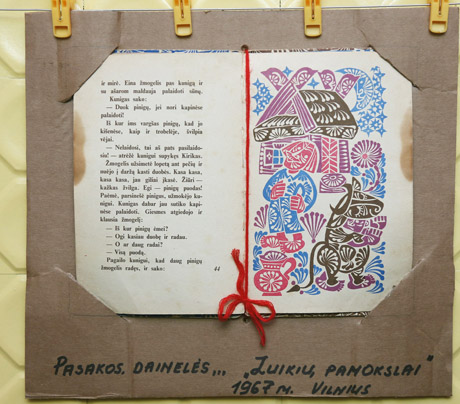 ir mirė. Eina žmogelis pas kunigą ir
su ašarom maldauja palaidoti sūnų.
Kunigas sako:
— Duok pinigų, jei nori kapinėse
palaidoti!
Iš kur ims vargšas pinigų, kad jo
kišenėse, kaip ir trobelėje, švilpia
vėjai.
— Nelaidosi, tai aš pats pasilaido-
siu! — atrėžė kunigui supykęs Kirikas.
Žmogelis užsimetė lopetą ant pečių ir
nuėjo į daržą kasti duobės. Kasa kasa,
kasa kasa, jau giliai įkasė. Žiūri —
kažkas žvilga. Egi — pinigų puodas!
Paėmė, parsinešė pinigus, užmokėjo ku-
nigui. Kunigas dabar jau sutiko kapi-
nėse palaidoti. Giesmes atgiedojo ir
klausia žmogelį:
— Iš kur pinigų ėmei?
— Ogi kasiau duobę ir radau.
— O ar daug radai?
— Visą puodą.
Pagailo kunigui, kad daug pinigų
žmogelis radęs, ir sako:
44
PASAKOS, DAINELĖS,.. „ZUIKIŲ PAMOKSLAI"
1967 M. VILNIUS